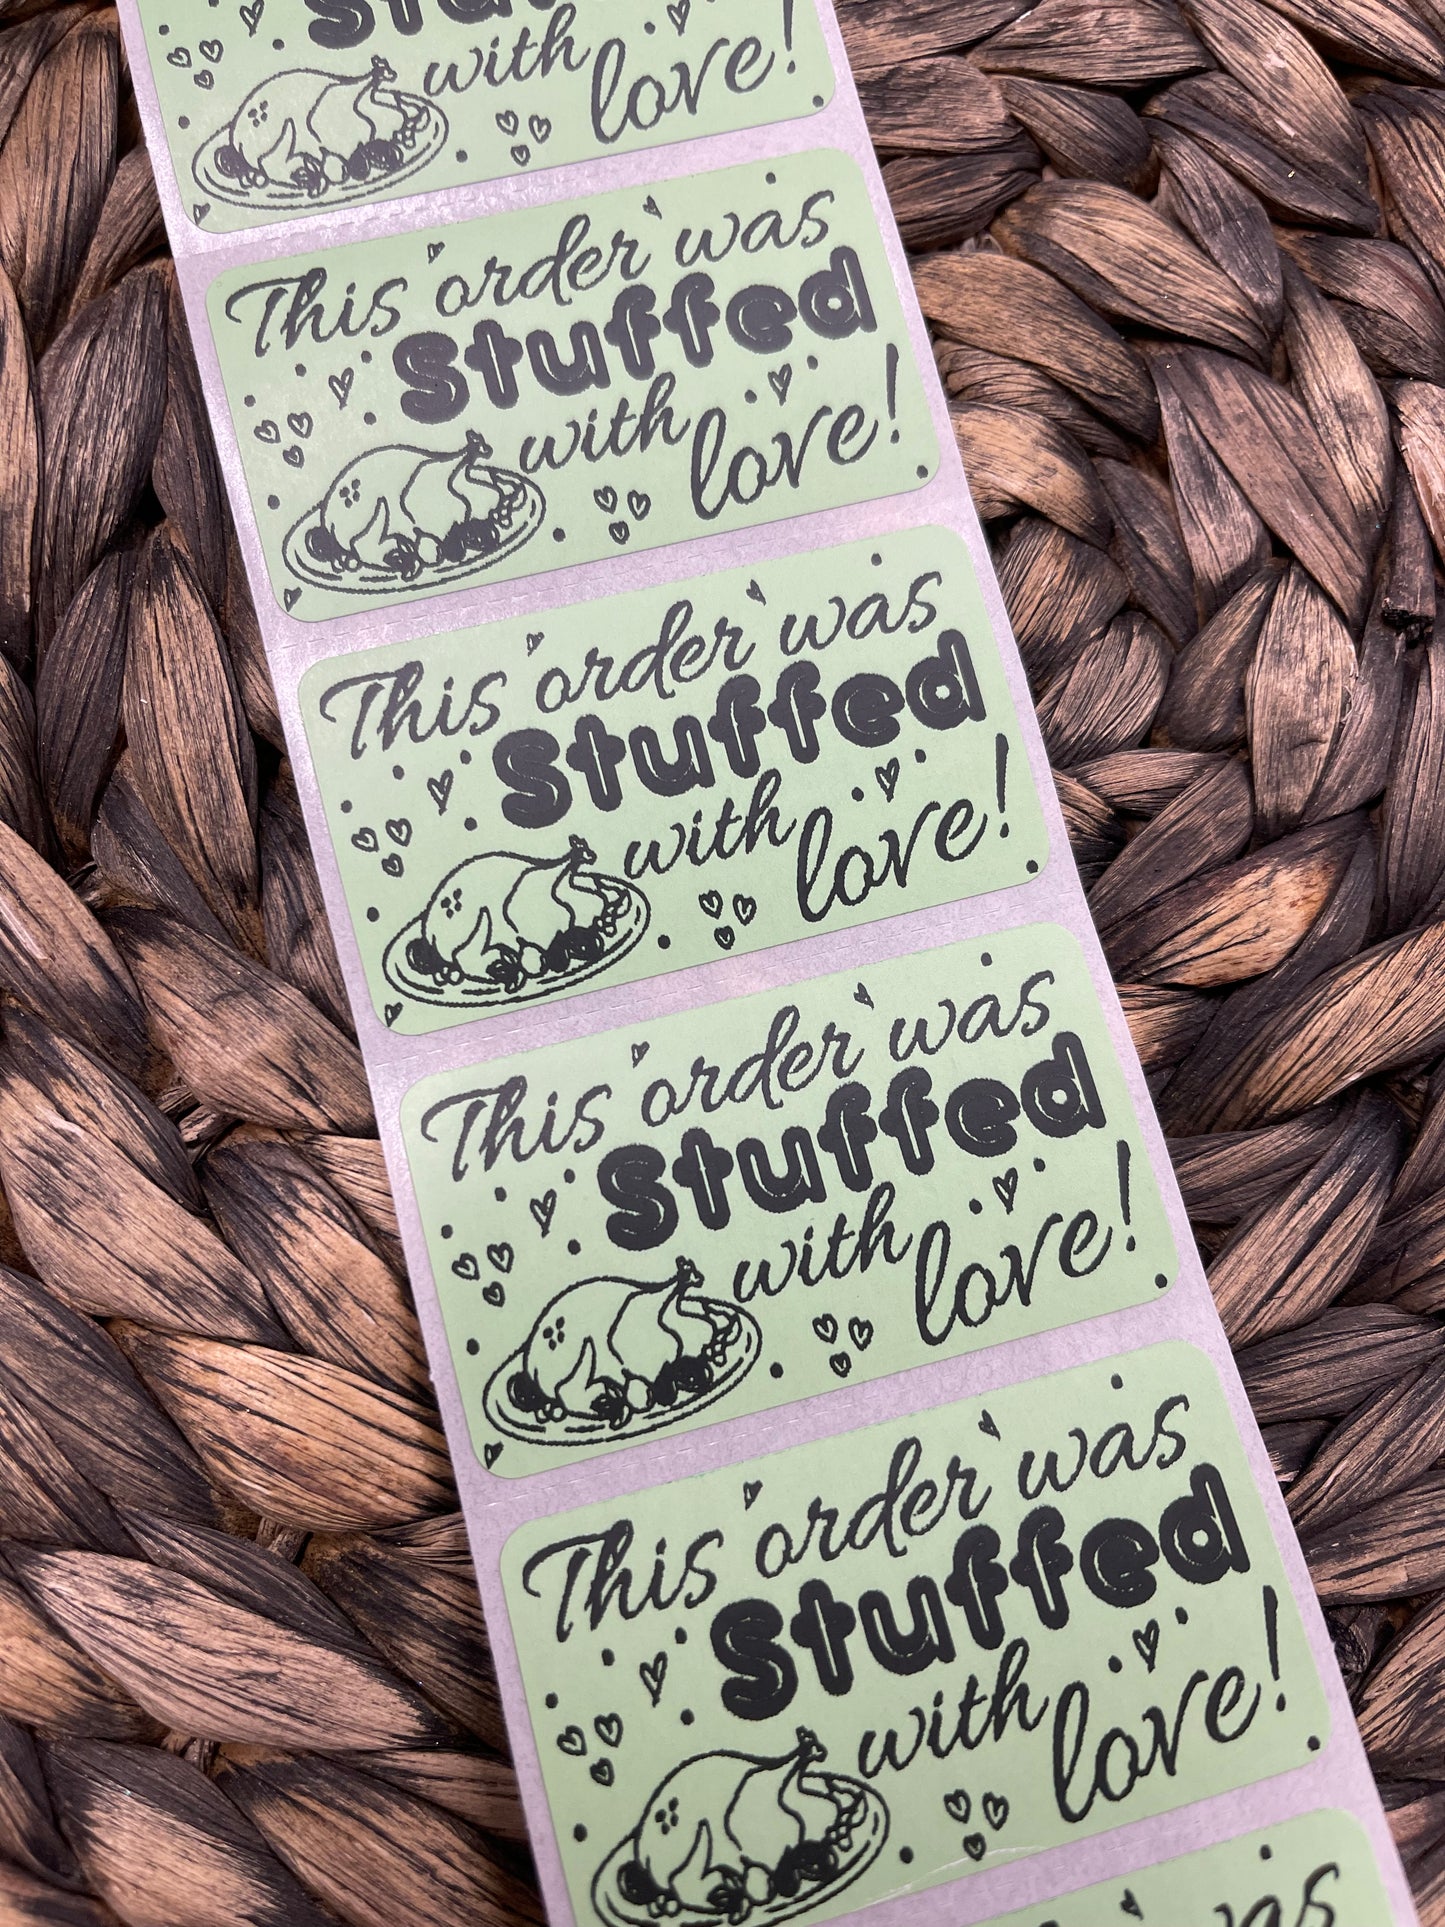 Stuffed
with love!
This order was
Stuffed
with love!
This order was
Stuffed
with love!
This order was
Stuffed
with love!
This order was
Stuffed
with love!
was